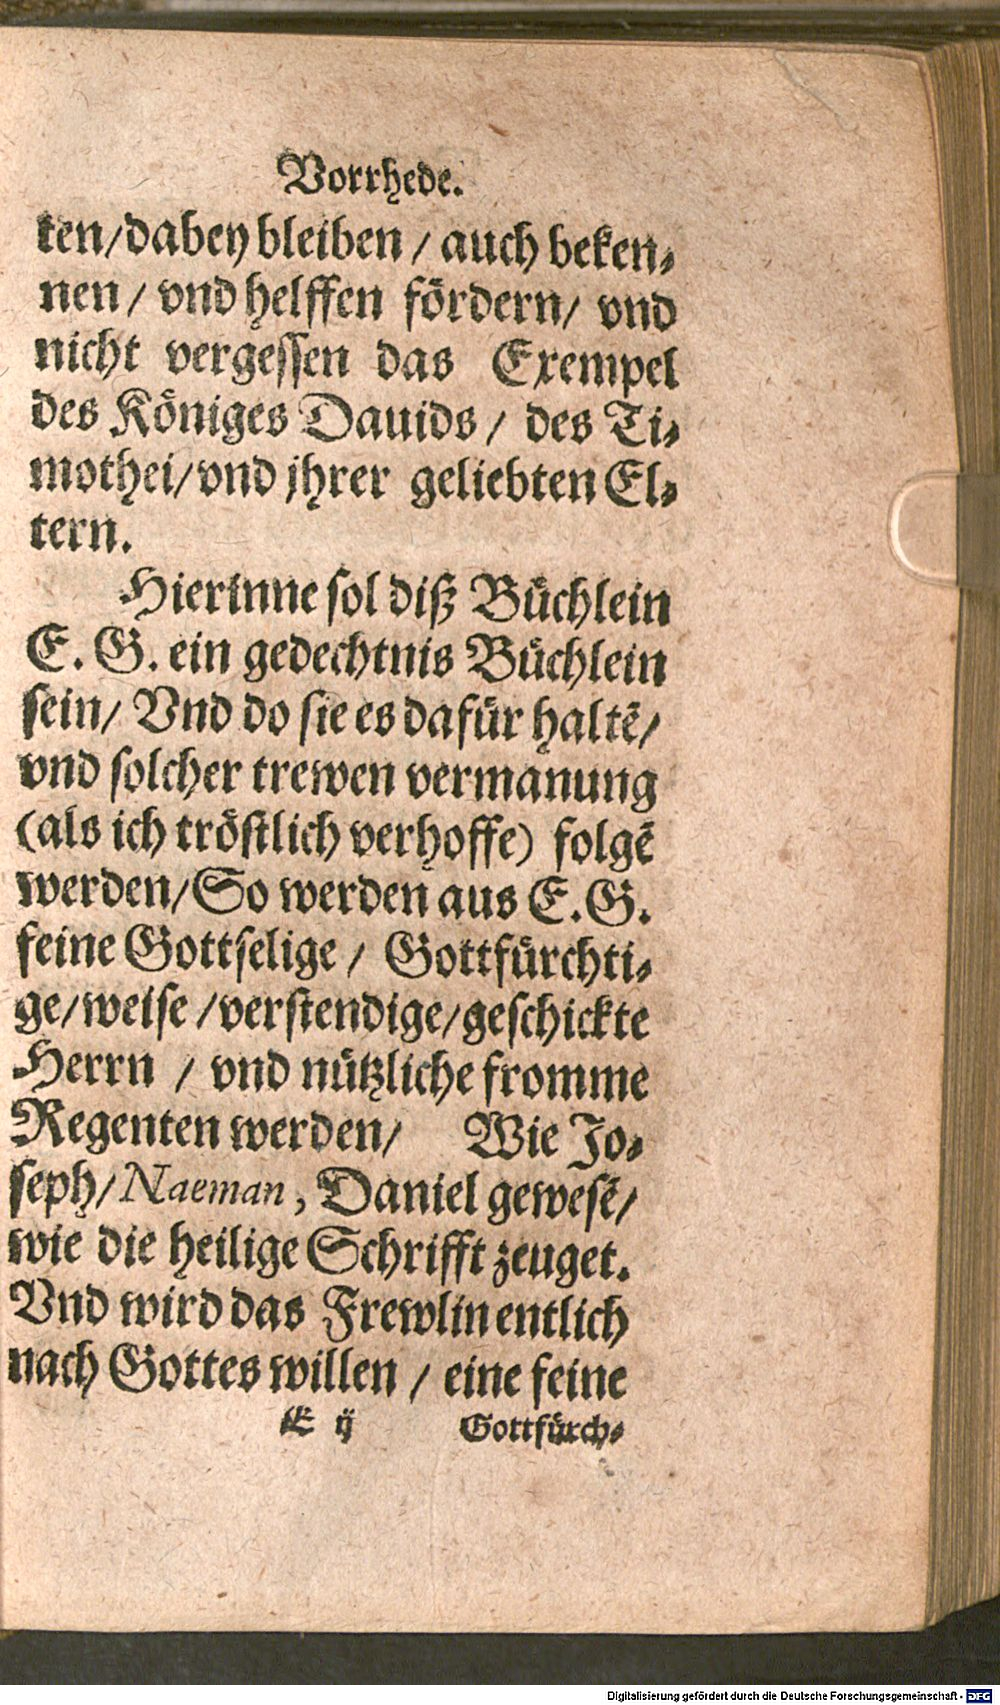 Vorrhede.
ten/dabey bleiben / auch beken⸗
nen / vnd helffen fördern/ vnd
nicht vergessen das Exempel
des Königes Dauids / des Ti⸗
mothei/vnd jhrer geliebten El⸗
tern.
Hierinne sol diß Büchlein
E. G. ein gedechtnis Büchlein
sein/ Vnd do sie es dafür haltẽ/
vnd solcher trewen vermanung
(als ich tröstlich verhoffe) folgẽ
werden/So werden aus E. G.
feine Gottselige / Gottfürchti⸗
ge/weise /verstendige/geschickte
Herrn / vnd nützliche fromme
Regenten werden/ Wie Jo⸗
seph/Naeman, Daniel gewesẽ/
wie die heilige Schrifft zeuget.
Vnd wird das Frewlin entlich
nach Gottes willen / eine feine
E ij Gottfürch⸗
Digitalisierung gefördert durch die Deutsche Forschungsgemeinschaft - DFG